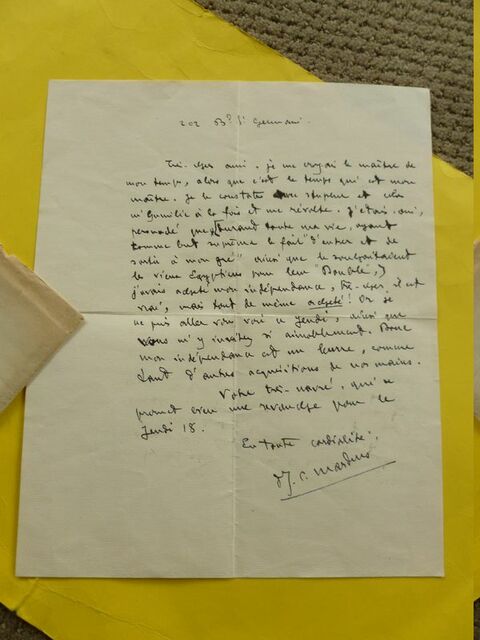 202 Bd St Germain.
Très cher ami. je me croyais le maître de
mon temps, alors que c'est le temps qui est mon
maître. Je le constate avec stupeur et cela
m'humilie à la fois et me révolte. J'étais, ami,
persuadé que (durant toute ma vie, ayant
comme but suprême le fait "d'entrer et de
sortir à mon gré" ainsi que le souhaitaient
les vieux Égyptiens pour leur "Double",)
j'avais acheté mon indépendance, très-cher, il est
vrai, mais tout de même acheté! Or je
ne puis aller vous voir ce jeudi, ainsi que
vous m'y invitez si aimablement. Donc
mon indépendance est un leurre, comme
tant d'autres acquisitions de nos mains.
Votre très-navré, qui se
promet bien une revanche pour le
Jeudi 18.
En toute cordialité:
J. C. Mardrus